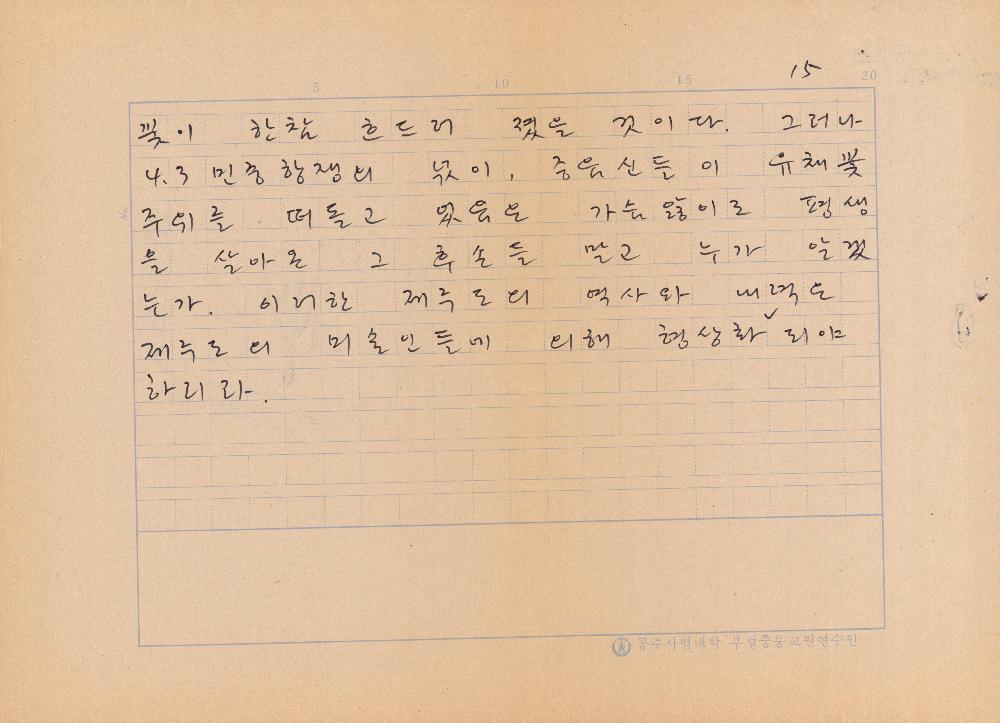 15
5 10 15 20
꽃이 한참 흐드러 졌을 것이다. 그러나
4.3 민중항쟁의 넋이, 중음신들이 유채꽃
주위를 떠돌고 있음은 가슴앓이로 평생
을 살아온 그 후손들 말고 누가 알겠
는가. 이러한 제주도의 역사와 내력은
제주도의 미술인들에 의해 형상화 되야
하리라.
공주사범대학 부설중등교원연수원